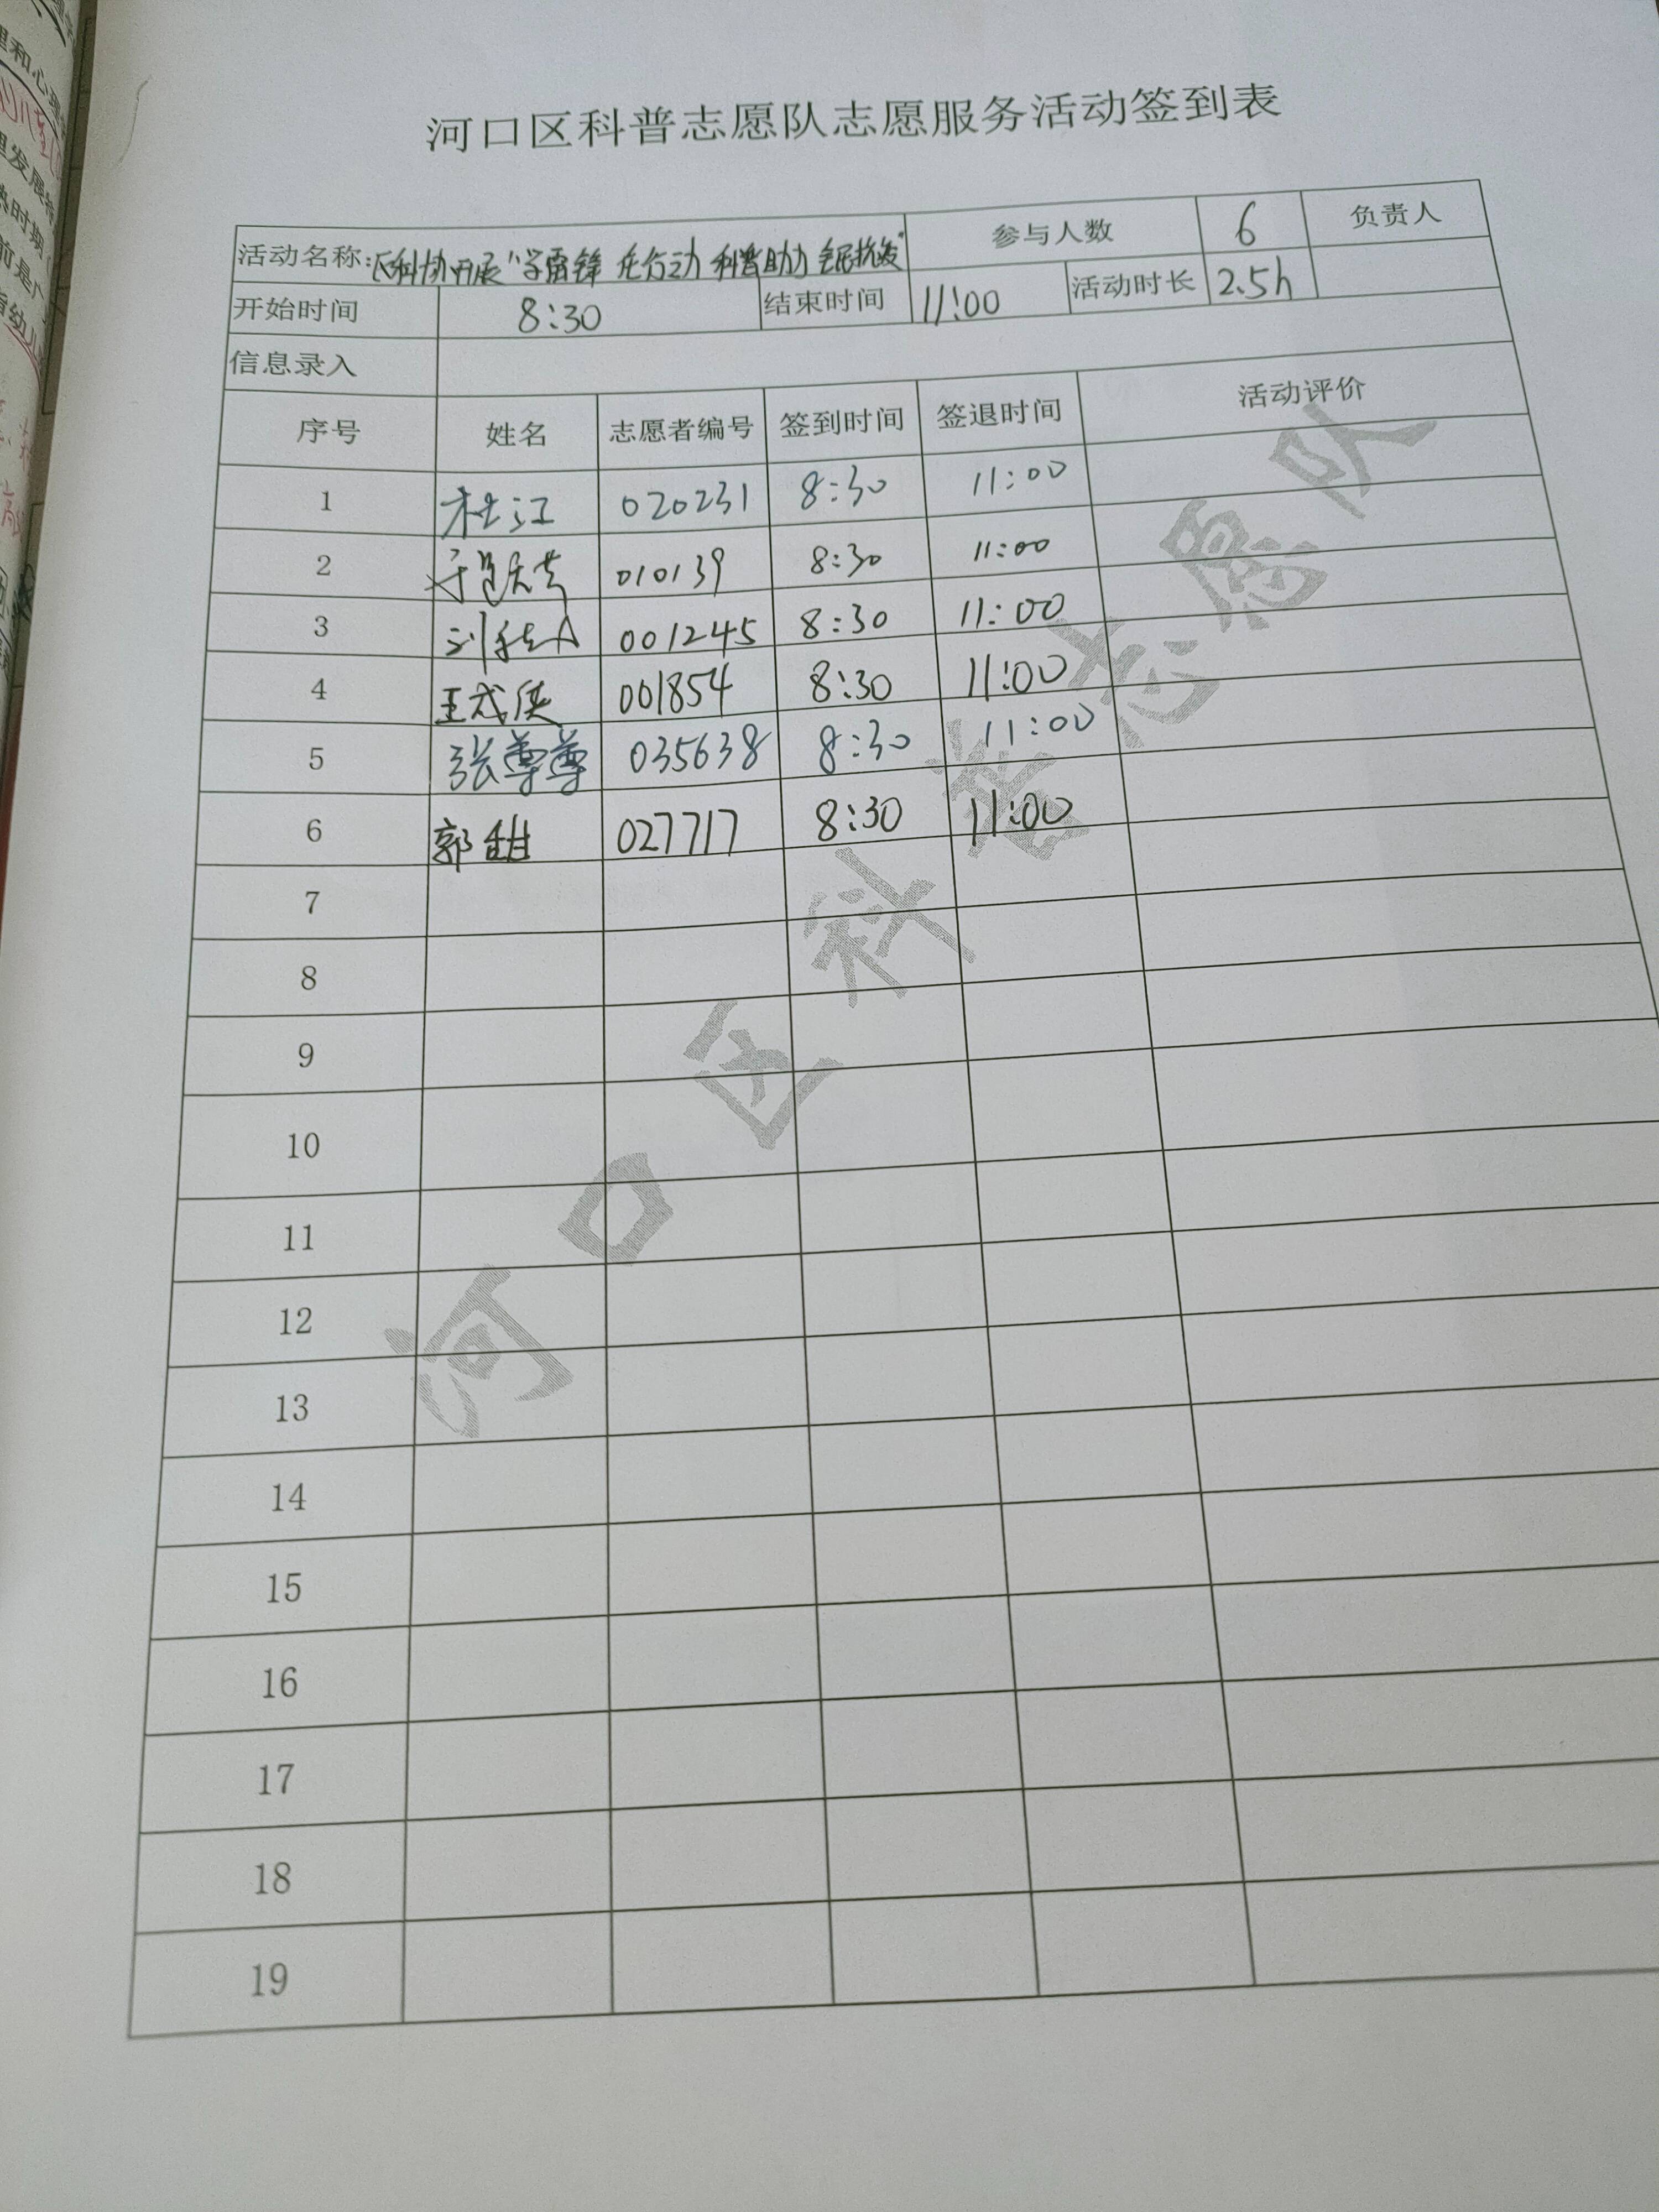 河口区科普志愿队志愿服务活动签到表
活动名称:区科协开展"学雷锋 在行动 科普助力 全民抗疫" 参与人数 6 负责人
开始时间 8:30 结束时间 11:00 活动时长 2.5h
信息录入
序号 姓名 志愿者编号 签到时间 签退时间 活动评价
1 杜江 020231 8:30 11:00
2 010139 8:30 11:00
3 刘 001245 8:30 11:00
4 王式侠 001854 8:30 11:00
5 张尊尊 035638 8:30 11:00
6 郭甜 027717 8:30 11:00
7
8
9
10
11
12
13
14
15
16
17
18
19
河口区科普志愿队